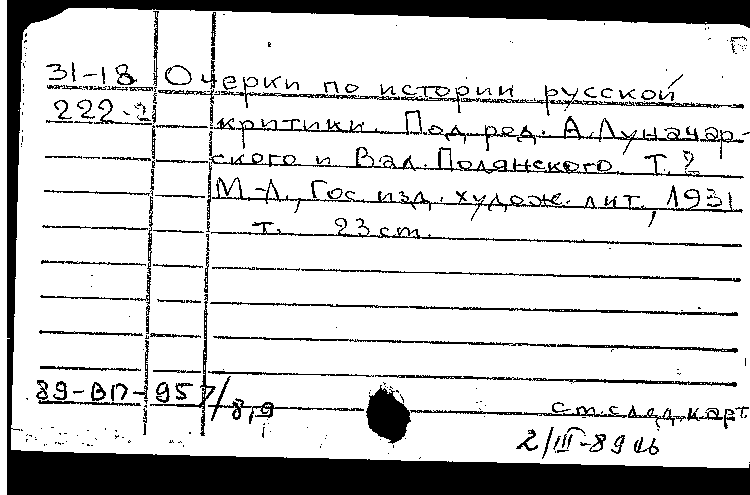 31-18 Очерки по истории русской
222-2 критики. Под ред. А. Луначар-
ского и Вал. Полянского. Т. 2
М.-Л., Гос. изд. худож. лит., 1931
т. 23 cm.
89-ВП-957/8,9
см. след. карт
2/III-89